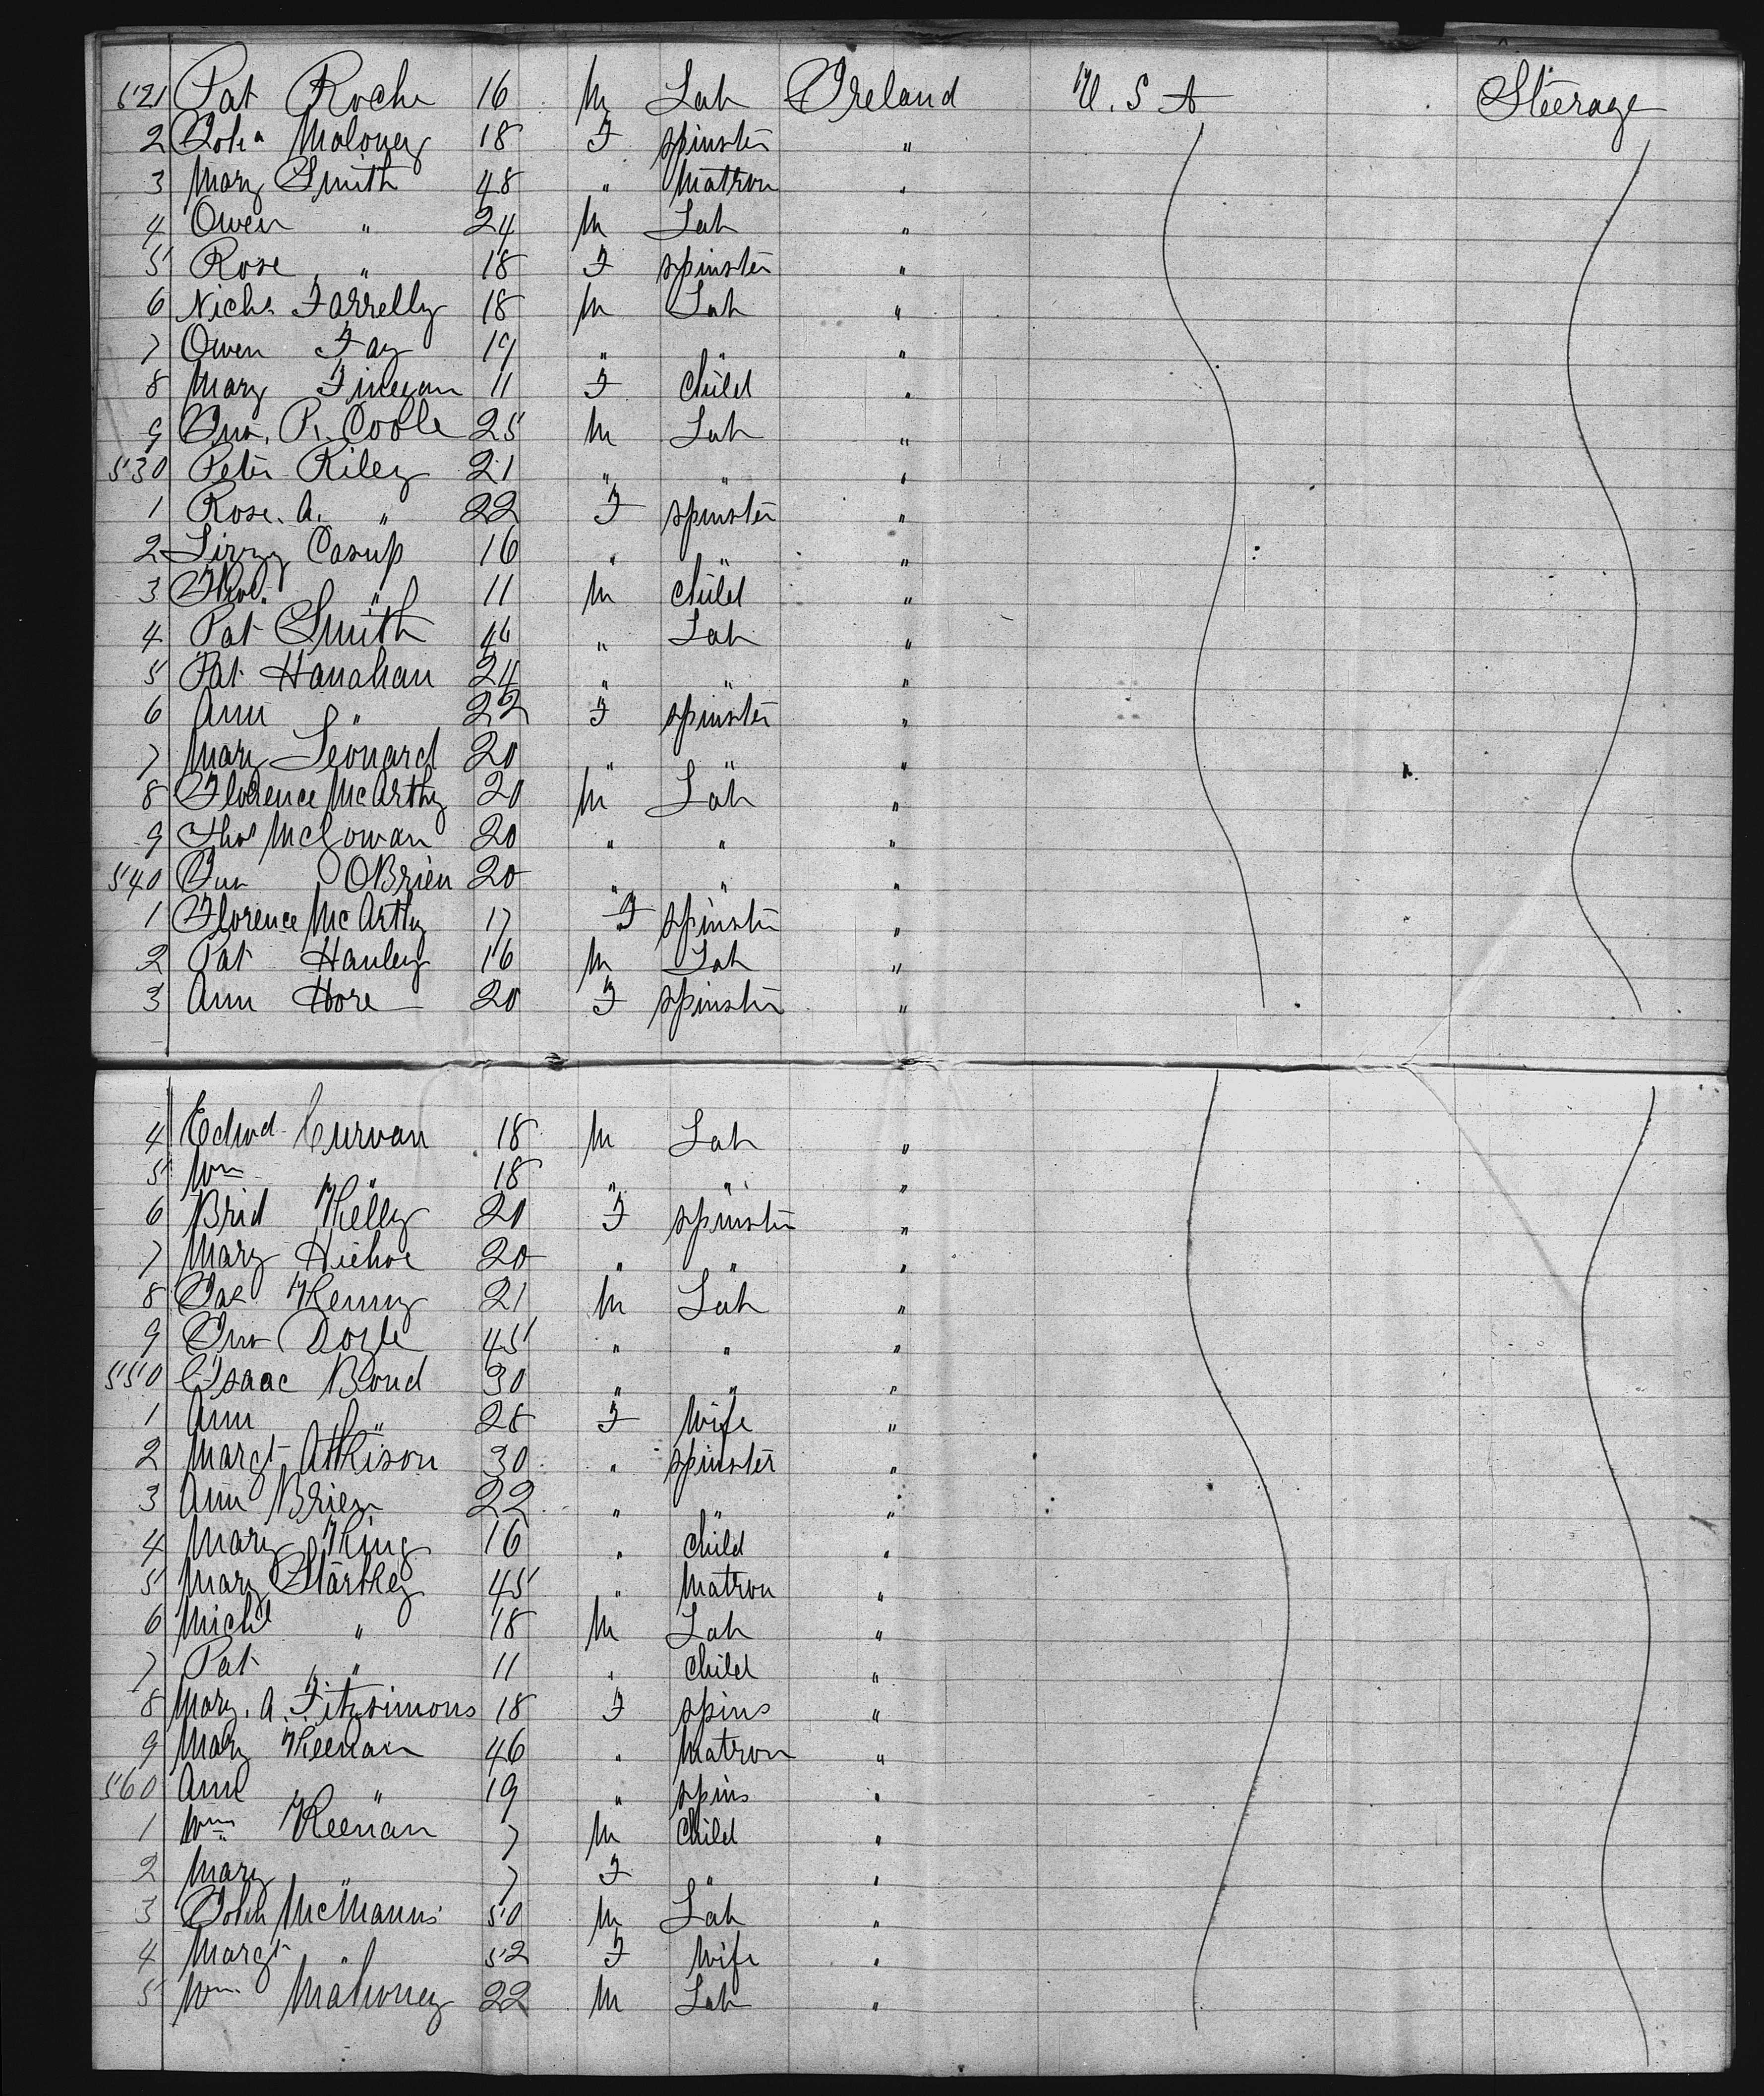 521 Pat Roche 16 M Lab Ireland U. S. A Steerage
2 Maloney 18 F spinster "
3 Mary Smith 48 " Matron "
4 Owen " 24 M Lab "
5 Rose " 18 F spinster "
6 Nichs Farrelly 18 M Lab "
7 Owen Fay 19 " " "
8 Mary Finegan 11 F child "
9 Jno. P. Coole 25 M Lab "
530 Peter Riley 21 " " "
1 Rose. A. " 22 F spinster "
2 Lizzy Casup 16 " " "
3 Thos. " 11 M child "
4 Pat Smith 46 " Lab "
5 Pat Hanahan 24 " " "
6 Ann " 22 F spinster "
7 Mary Leonard 20 " " "
8 Florence McArthy 20 M Lab "
9 Thos McGowan 20 " " "
540 Jno OBrien 20 " " "
1 Florence McArthy 17 F spinster "
2 Pat Hanley 16 M Lab "
3 Ann Hore 20 F spinster "
4 Edwd Curvan 18 M Lab "
5 Wm " 18 " " "
6 Brid Kelly 20 F spinster "
7 Mary Hiehoe 20 " " "
8 Jas Kenny 21 M Lab "
9 Jno Doyle 45 " " "
550 Isaac Bond 30 " " "
1 Ann " 28 F Wife "
2 Margt Atkison 30 " spinster "
3 Ann Brien 22 " " "
4 Mary King 16 " child "
5 Mary Starkey 45 " Matron "
6 Michl " 18 M Lab "
7 Pat " 11 " child "
8 Mary. A. Fitzsimons 18 F spins "
9 Mary Keenan 46 " Matron "
560 Ann " 19 " spins "
1 Wm Keenan 7 M Child "
2 Mary " 7 F " "
3 John McManus 50 M Lab "
4 Margt " 52 F Wife "
5 Wm Mahoney 22 M Lab "